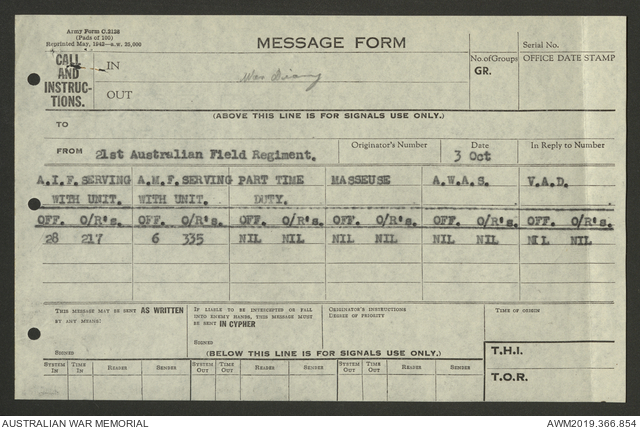 Army Form C.2128
(Pads of 100)
Reprinted May, 1942—a.w. 25,000
MESSAGE FORM
Serial No.
CALL
AND
INSTRUC-
TIONS.
IN
War Diary
No. of Groups
GR.
OFFICE DATE STAMP
OUT
(ABOVE THIS LINE IS FOR SIGNALS USE ONLY.)
TO
FROM 21st Australian Field Regiment.
Originator's Number
Date
3 Oct
In Reply to Number
A.I.F. SERVING A.M.F. SERVING PART TIME MASSEUSE A.W.A.S. V.A.D.
WITH UNIT. WITH UNIT. DUTY.
OFF. O/R's. OFF. O/R's. OFF. O/R's. OFF. O/R's. OFF. O/R's. OFF. O/R's.
28 217 6 335 NIL NIL NIL NIL NIL NIL NIL NIL
THIS MESSAGE MAY BE SENT AS WRITTEN
BY ANY MEANS:
SIGNED
IF LIABLE TO BE INTERCEPTED OR FALL
INTO ENEMY HANDS, THIS MESSAGE MUST
BE SENT IN CYPHER
SIGNED
ORIGINATOR'S INSTRUCTIONS
DEGREE OF PRIORITY
TIME OF ORIGIN
(BELOW THIS LINE IS FOR SIGNALS USE ONLY.)
T.H.I.
T.O.R.
SYSTEM IN TIME IN READER SENDER SYSTEM OUT TIME OUT READER SENDER SYSTEM OUT TIME OUT READER SENDER
AUSTRALIAN WAR MEMORIAL
AWM2019.366.854